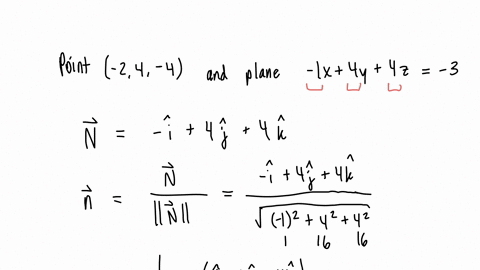 Point (-2, 4, -4) and plane -1x + 4y + 4z = -3
N⃗ = -î + 4ĵ + 4k̂
n⃗ = N⃗ / ||N⃗|| = (-î + 4ĵ + 4k̂) / √((-1)² + 4² + 4²)
1 16 16